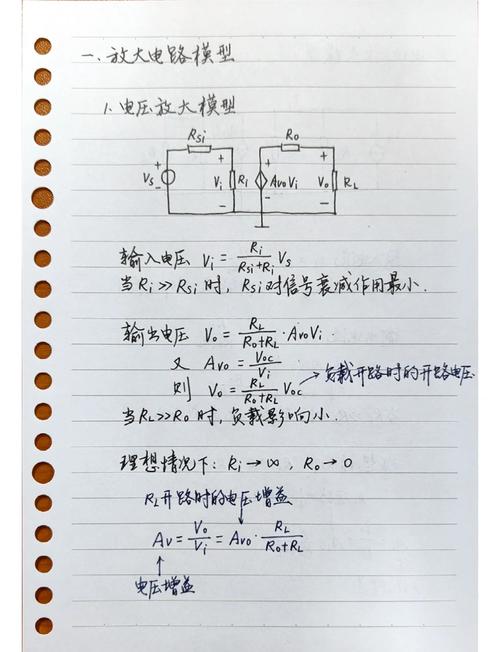 一、放大电路模型
1、电压放大模型
Rsi Ro
+ + + +
Vs Vi Ri AvoVi Vo RL
- - - -
输入电压 Vi = Ri/(Rsi+Ri) Vs
当 Ri >> Rsi 时, Rsi对信号衰减作用最小.
输出电压 Vo = RL/(Ro+RL) · AvoVi
又 Avo = Voc/Vi
则 Vo = RL/(Ro+RL) Voc → 负载开路时的开路电压
当RL>>Ro 时, 负载影响小.
理想情况下: Ri → ∞, Ro → 0
RL开路时的电压增益
Av = Vo/Vi = Avo · RL/(Ro+RL)
电压增益